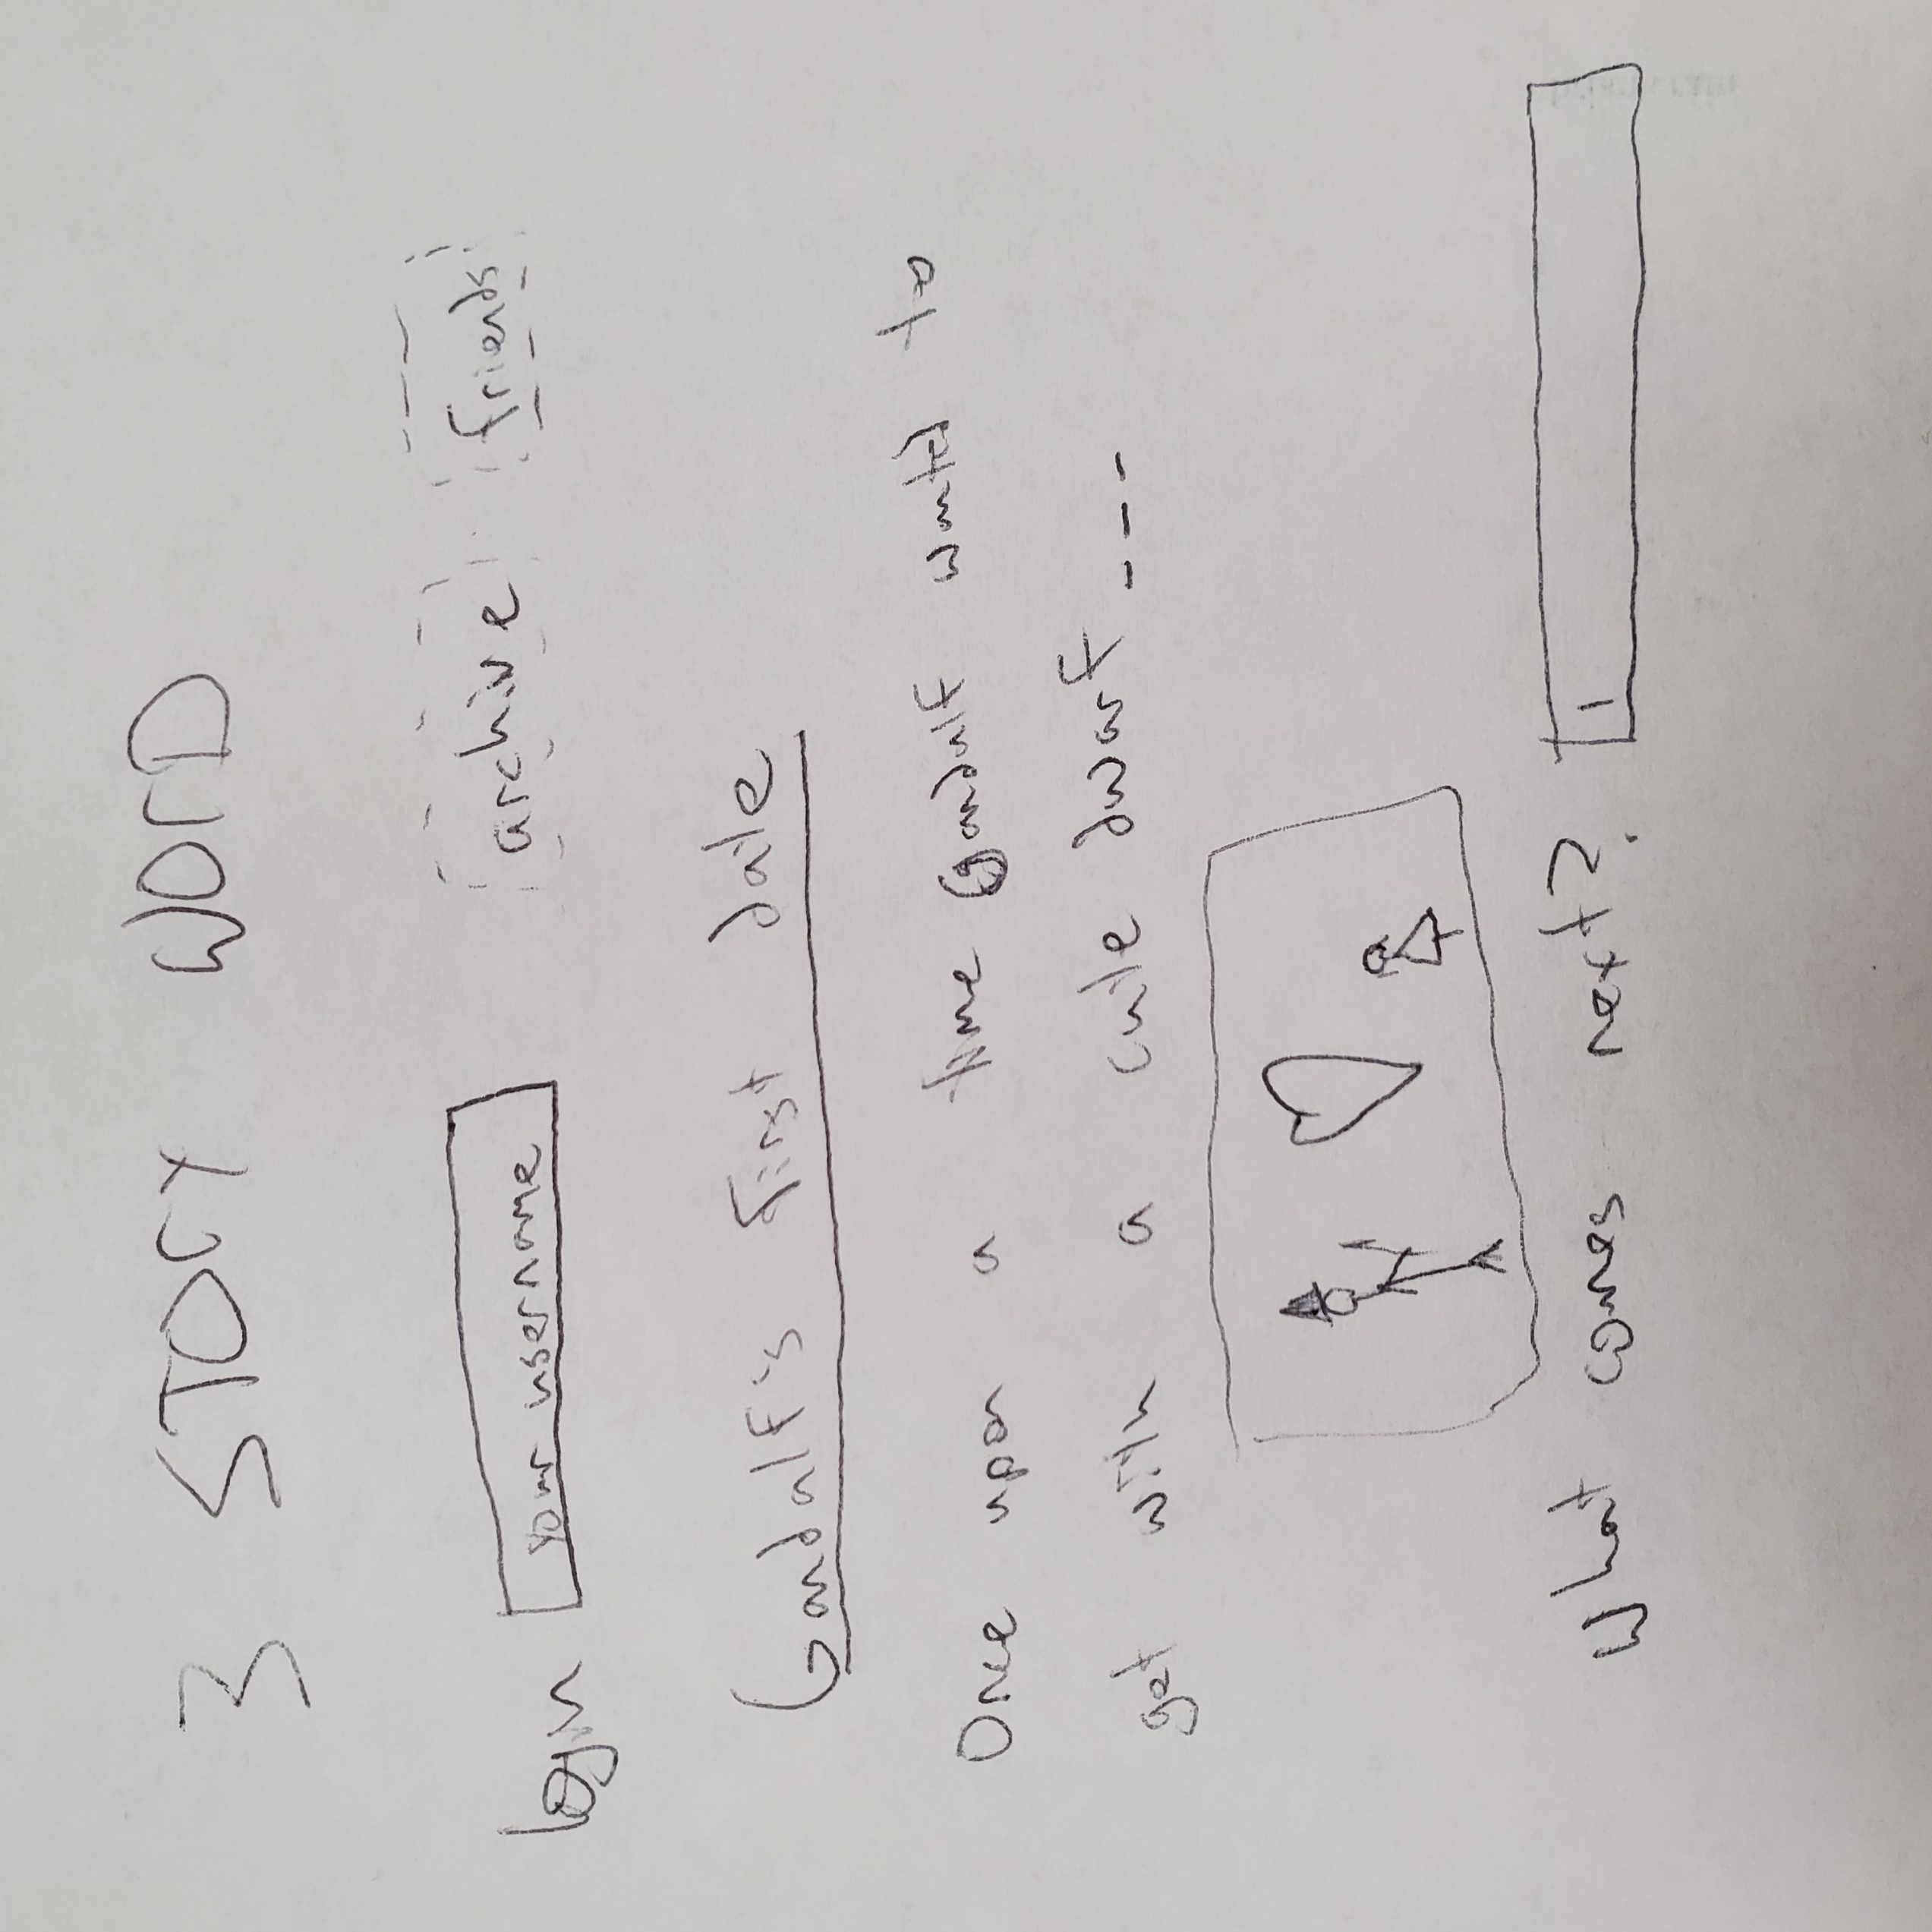 3 STORY WORD
login your username archive friends
Gandalf's first date
Once upon a time Gandalf wanted to
get with a cute dwarf ----
What comes next?